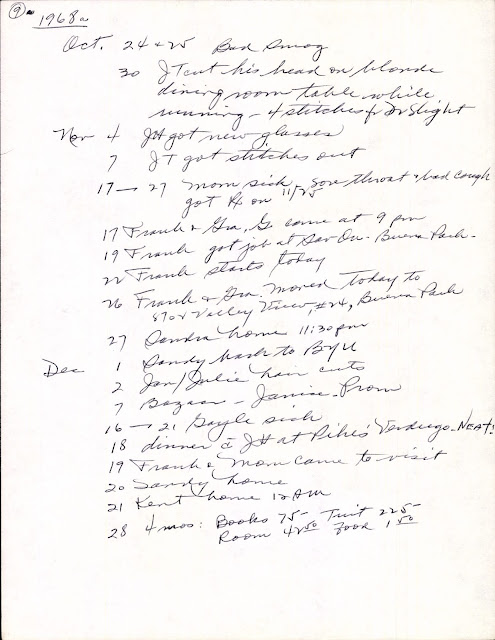 9a 1968a
Oct. 24 + 25 Bad smog
30 JT cut his head on blonde
dining room table while
running - 4 stitches Dr Slight
Nov 4 JH got new glasses
7 JT got stitches out
17 → 27 Mom sick, sore throat & bad cough
got Rx on 11/25
17 Frank & Gra. G came at 9 pm
19 Frank got job at Sav On - Buena Park.
22 Frank starts today
26 Frank & Gra. moved today to
Valley View, #24, Buena Park
27 Sandra home 11:30 pm
Dec 1 Sandy back to BYU
2 Jan/Julie hair cuts
7 Bazaar - Janise - Prom
16 → 21 Gayle sick
18 dinner c̄ JH at Pikes' Verdugo - NEAT!
19 Frank & Mom came to visit
20 Sandy home
21 Kent home 12 AM
28 4 mos: Books 75- Tuit 225-
Room 42 50 Food 1 50